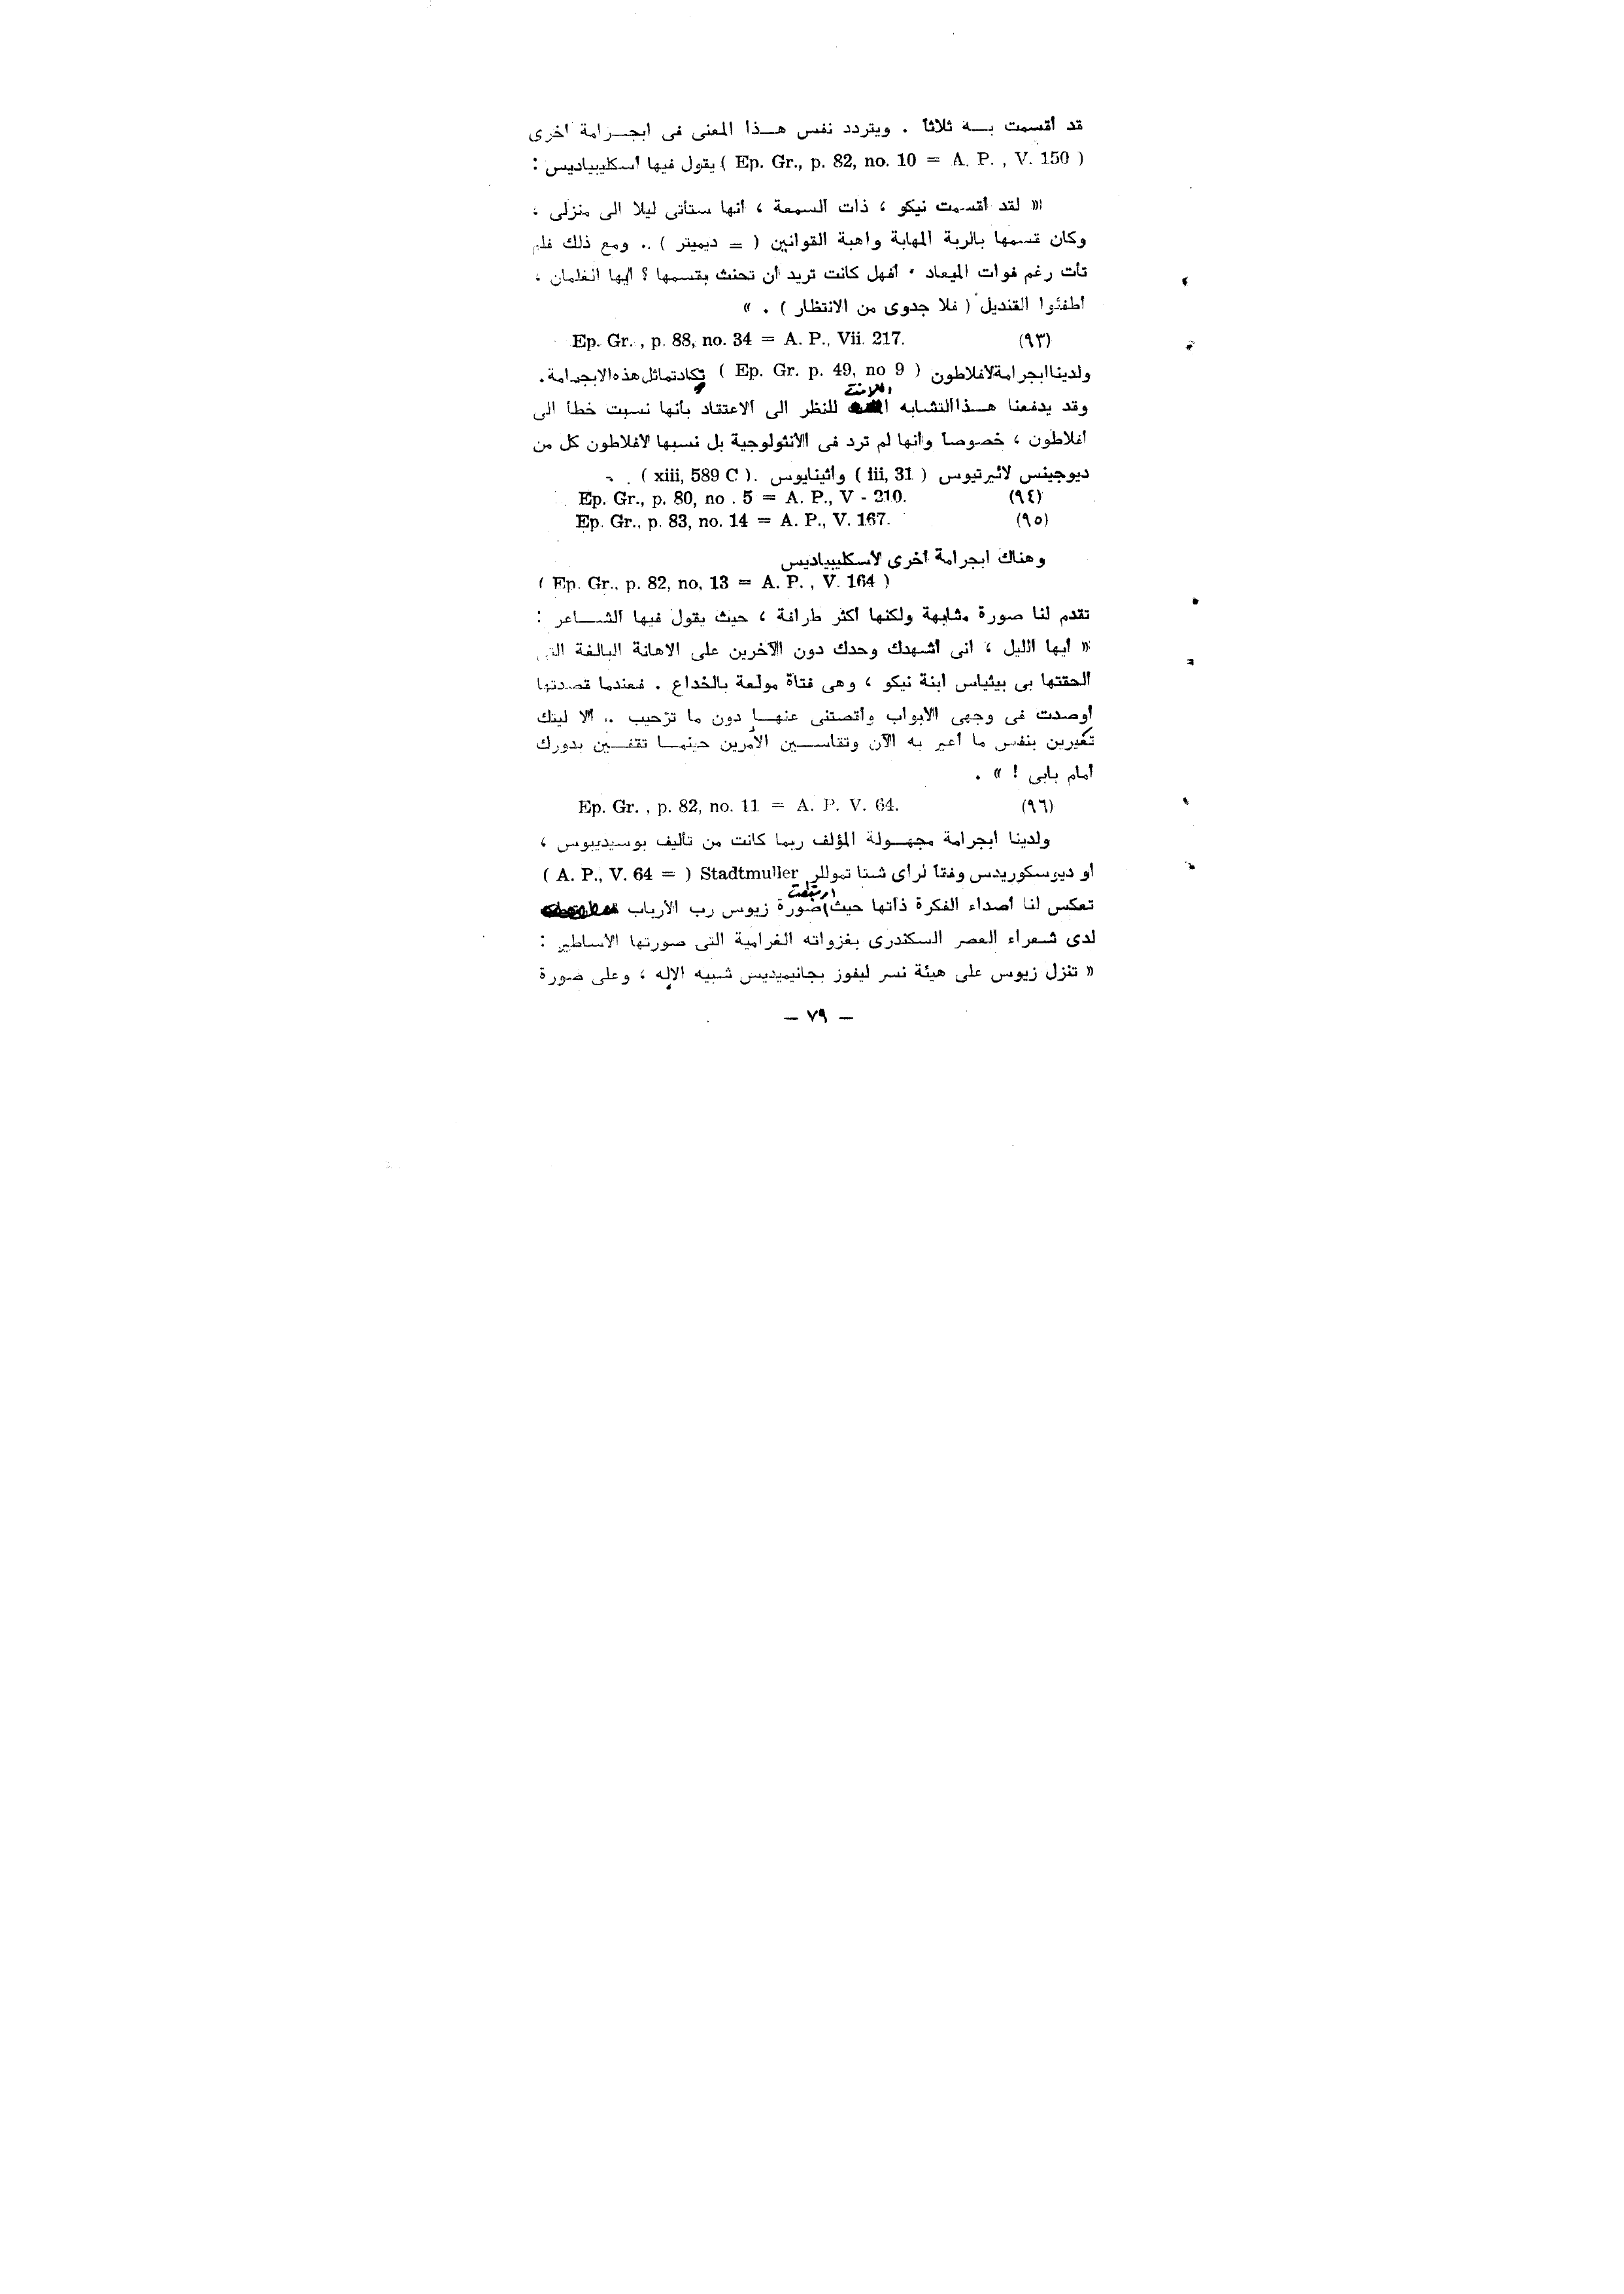 قد أقسمت بـــه ثلاثا . ويتردد نفس هـــذا المعنى فى ابجــرامة اخرى
( Ep. Gr., p. 82, no. 10 = A. P. , V. 150 ) يقول فيها أسكليبياديس :
« لقد أقسمت نيكو ، ذات السمعة ، أنها ستأتى ليلا الى منزلى ،
وكان قسمها بالربة المهابة واهبة القوانين ( = ديميتر ) .. ومع ذلك فلم
تأت رغم فوات الميعاد . أفهل كانت تريد أن تحنث بقسمها ؟ أيها الغلمان ،
أطفئوا القنديل ( فلا جدوى من الانتظار ) . »
(٩٣) Ep. Gr. , p. 88, no. 34 = A. P., Vii. 217.
ولدينا ابجرامة لأفلاطون ( Ep. Gr. p. 49, no 9 ) تكاد تماثل هذه الابجرامة .
وقد يدفعنا هـــذا التشابه اللافت للنظر الى الاعتقاد بأنها نسبت خطأ الى
أفلاطون ، خصوصا وأنها لم ترد فى الأنثولوجية بل نسبها لأفلاطون كل من
ديوجينس لائيرتيوس ( iii, 31 ) وأثينايوس . ( xiii, 589 C ) .
(٩٤) Ep. Gr., p. 80, no . 5 = A. P., V - 210.
(٩٥) Ep. Gr., p. 83, no. 14 = A. P., V. 167.
وهناك ابجرامة أخرى لأسكليبياديس
( Ep. Gr., p. 82, no, 13 = A. P. , V. 164 )
تقدم لنا صورة مشابهة ولكنها أكثر طرافة ، حيث يقول فيها الشـــاعر :
« أيها الليل ، انى أشهدك وحدك دون الآخرين على الاهانة البالغة التى
الحقتها بى بيثياس ابنة نيكو ، وهى فتاة مولعة بالخداع . فعندما قصدتها
أوصدت فى وجهى الأبواب وأقصتنى عنهـــا دون ما ترحيب .. ألا ليتك
تعيرين بنفس ما أعير به الآن وتقاســـين الأمرين حينمـــا تقفـــين بدورك
أمام بابى ! » .
(٩٦) Ep. Gr. , p. 82, no. 11 = A. P. V. 64.
ولدينا ابجرامة مجهــولة المؤلف ربما كانت من تأليف بوسيديبوس ،
أو ديوسكوريدس وفقا لرأى شتا تموللر Stadtmuller ( = A. P., V. 64 )
تعكس لنا أصداء الفكرة ذاتها حيث ارتبطت صورة زيوس رب الأرباب
لدى شعراء العصر السكندرى بغزواته الغرامية التى صورتها الأساطير :
« تنزل زيوس على هيئة نسر ليفوز بجانيميديس شبيه الاله ، وعلى صورة
— ٧٩ —